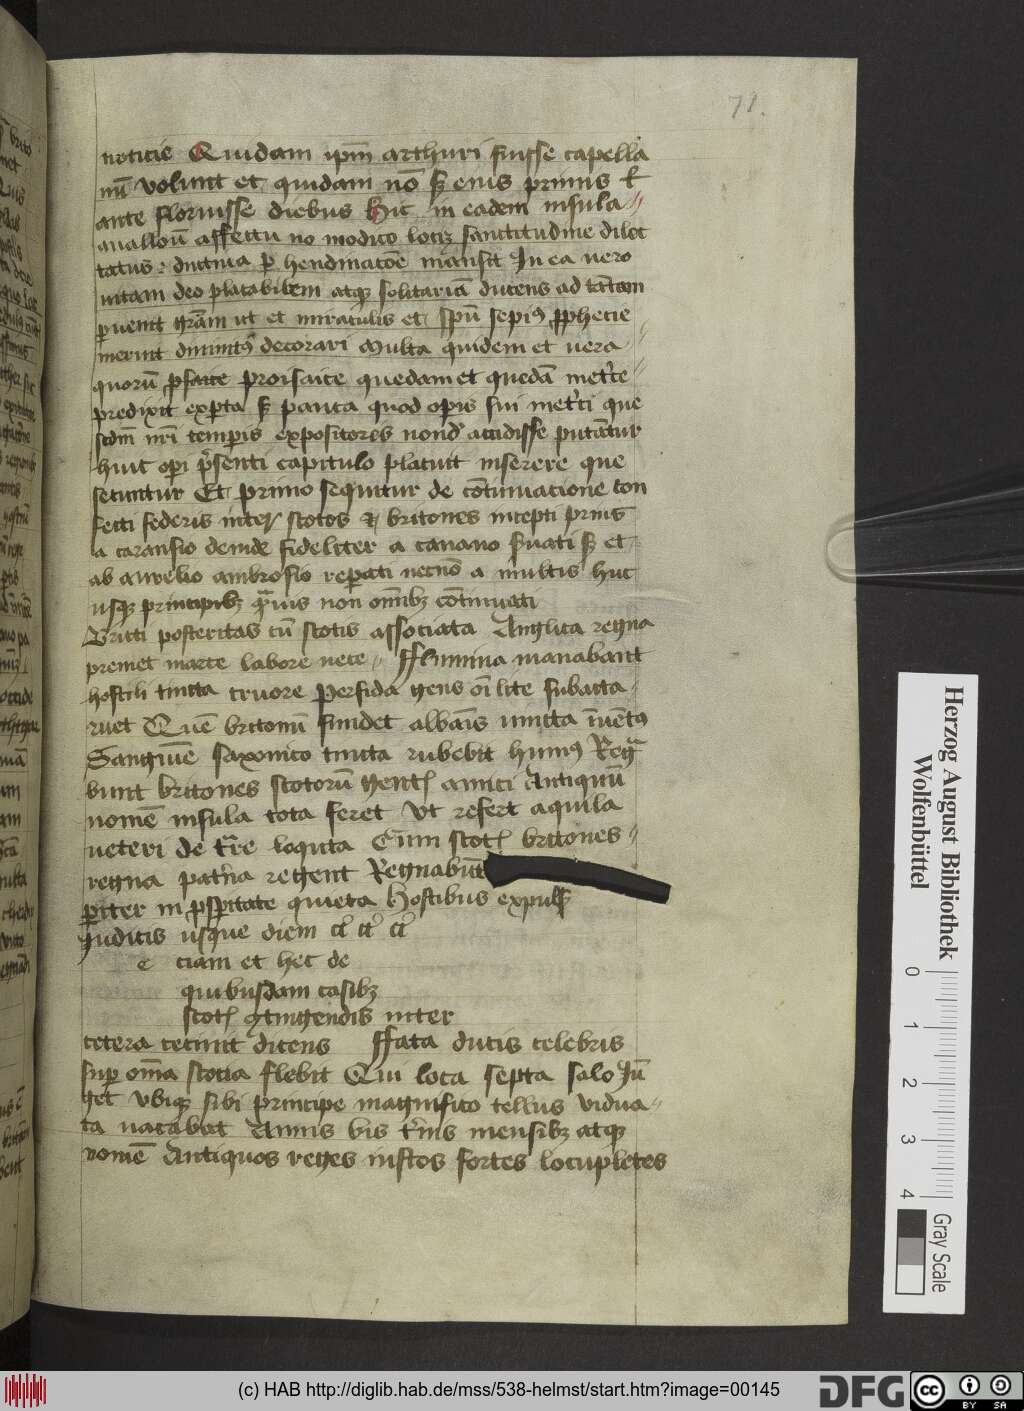 71.
noticie Quidam ipm̄ arthuri fuisse capella
nū volunt et quidam nō s; eius primus s;
ante floruisse diebus hic in eadem insula
auallon̄ affectu no modico lociz sanctitudine dilec
tatus
mansit In ea vero
vitam deo placabilem atqz solitariā ducens ad tātam
puenit grām ut et miraculis et spū sepius pphecie
meruit diuinitus decorari Multa quidem et vera
quorū prosaice quedam et quedā metrce
predixit expta s; pauca quod opis sui metrici que
scdm nri tempis expositores nond' accidisse putātur
huic opi p̄senti capitulo placuit inserere que
secuntur Et primo sequitur de cōtinuacione con
fecti federis inter scotos et britones incepti prius
a carausio deinde fideliter a canano suati s; et
ab aurelio ambrosio repati necnō a multis huc
usqz principibz quis non omībz cōtinuati
Britti posteritas cū scotis associata Anglica regna
premet marte labore nece Flumina manabant
hostili tincta cruore Perfida gens oī lite subacta
ruet Quē britonū fundet albaīs iuncta iuuētus
Sanguīe saxonico tincta rubebit humus Regna
bunt britones scotorū gentis amici Antiquū
nomē insula tota feret Ut refert aquila
veteri de tr̄re loquta Cum scotis britones
regna patna regent Regnabūt
pariter in pspitate quieta Hostibus expulsis
Iudicis usque diem
e ciam et hec de
quibusdam casibz
scotis gtingendis inter
cetera cecinit dicens Fata ducis celebris
sup om̄a scocia flebit Qui loca septa salo iū
get vbiqz sibi principe magnifico tellus vidua
ta vacabat Annis bis t̄nis mensibz atqz
nouē Antiquos reges iustos fortes locupletes
Herzog August Bibliothek
Wolfenbüttel
0 1 2 3 4
Gray Scale
(c) HAB http://diglib.hab.de/mss/538-helmst/start.htm?image=00145
DFG
cc BY SA